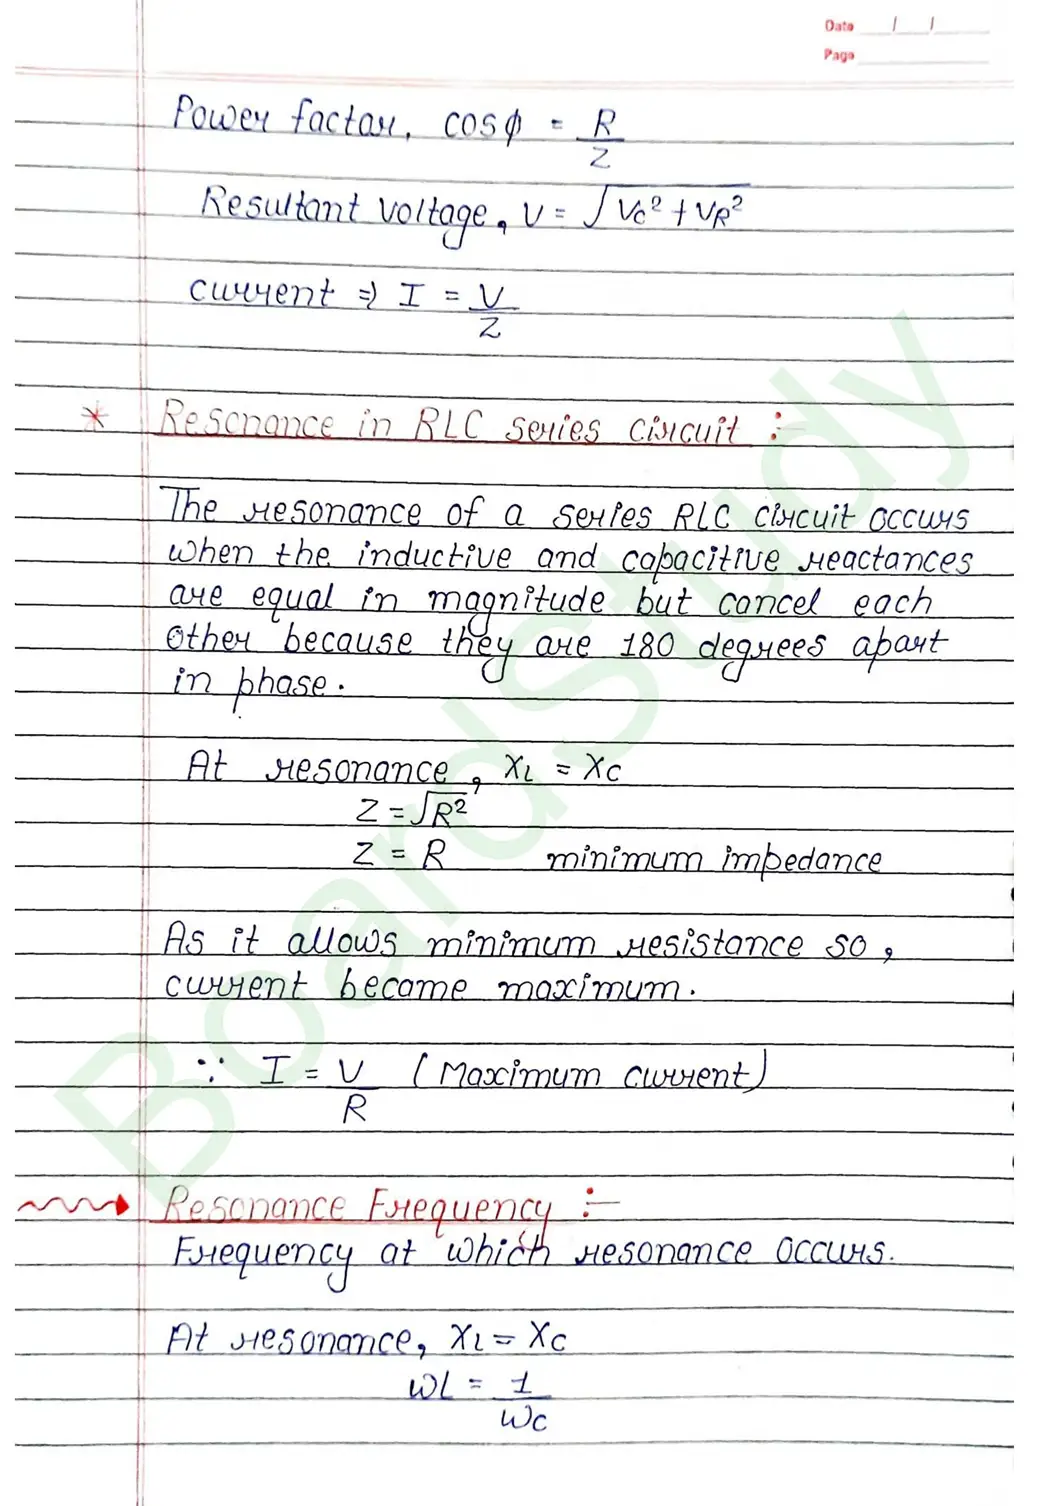 Date / /
Page
Power factor, cosφ = R/Z
Resultant voltage, V = √Vc² + VR²
current ⇒ I = V/Z
* Resonance in RLC series circuit :-
The resonance of a series RLC circuit occurs
when the inductive and capacitive reactances
are equal in magnitude but cancel each
other because they are 180 degrees apart
in phase.
At resonance, XL = XC
Z = √R²
Z = R minimum impedance
As it allows minimum resistance so,
current become maximum.
∵ I = V/R (Maximum current)
Resonance Frequency :-
Frequency at which resonance occurs.
At resonance, XL = XC
WL = 1/WC
BoardStudy